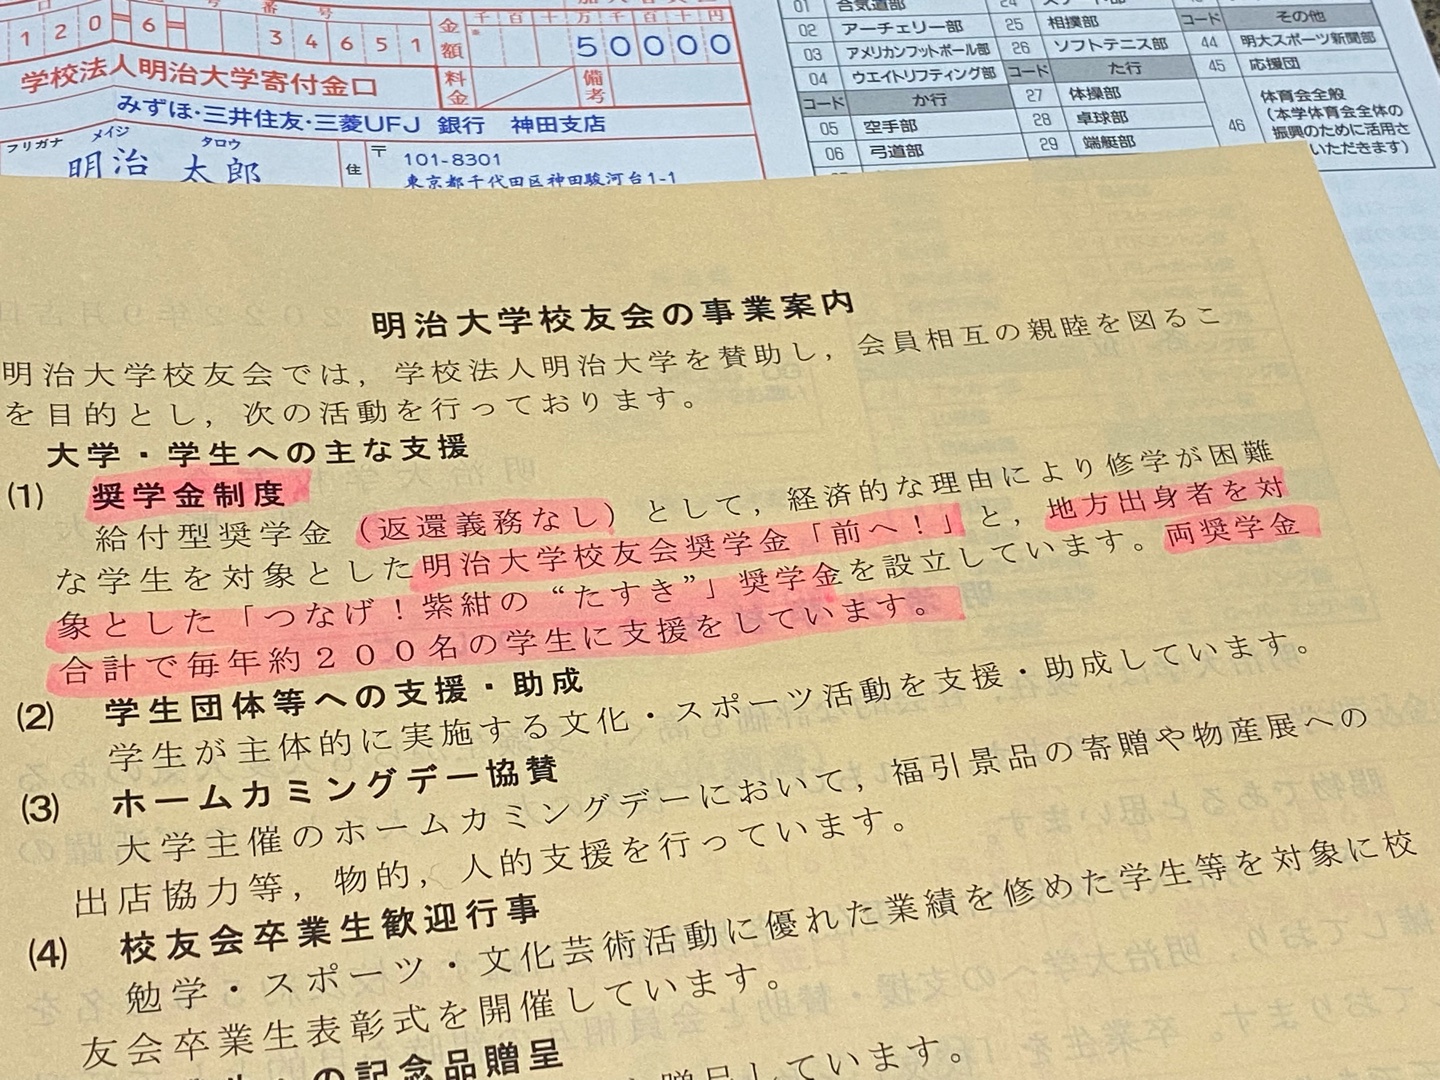 120-6- 34651
金額
千百十万千百十円
50000
料金
備考
学校法人明治大学寄付金口
みずほ・三井住友・三菱UFJ 銀行 神田支店
フリガナ メイジ タロウ
明治 太郎
住
〒 101-8301
東京都千代田区神田駿河台1-1
01 合気道部
02 アーチェリー部
03 アメリカンフットボール部
04 ウエイトリフティング部
コード か行
05 空手部
06 弓道部
24
25 相撲部
26 ソフトテニス部
コード た行
27 体操部
28 卓球部
29 端艇部
コード その他
44 明大スポーツ新聞部
45 応援団
46 体育会全般
(本学体育会全体の
振興のために活用さ
いただきます)
明治大学校友会の事業案内
明治大学校友会では，学校法人明治大学を賛助し，会員相互の親睦を図るこ
を目的とし，次の活動を行っております。
大学・学生への主な支援
(1) 奨学金制度
給付型奨学金（返還義務なし）として，経済的な理由により修学が困難
な学生を対象とした明治大学校友会奨学金「前へ！」と，地方出身者を対
象とした「つなげ！紫紺の“たすき”」奨学金を設立しています。両奨学金
合計で毎年約２００名の学生に支援をしています。
(2) 学生団体等への支援・助成
学生が主体的に実施する文化・スポーツ活動を支援・助成しています。
(3) ホームカミングデー協賛
大学主催のホームカミングデーにおいて，福引景品の寄贈や物産展への
出店協力等，物的，人的支援を行っています。
(4) 校友会卒業生歓迎行事
勉学・スポーツ・文化芸術活動に優れた業績を修めた学生等を対象に校
友会卒業生表彰式を開催しています。
の記念品贈呈
贈呈しています。